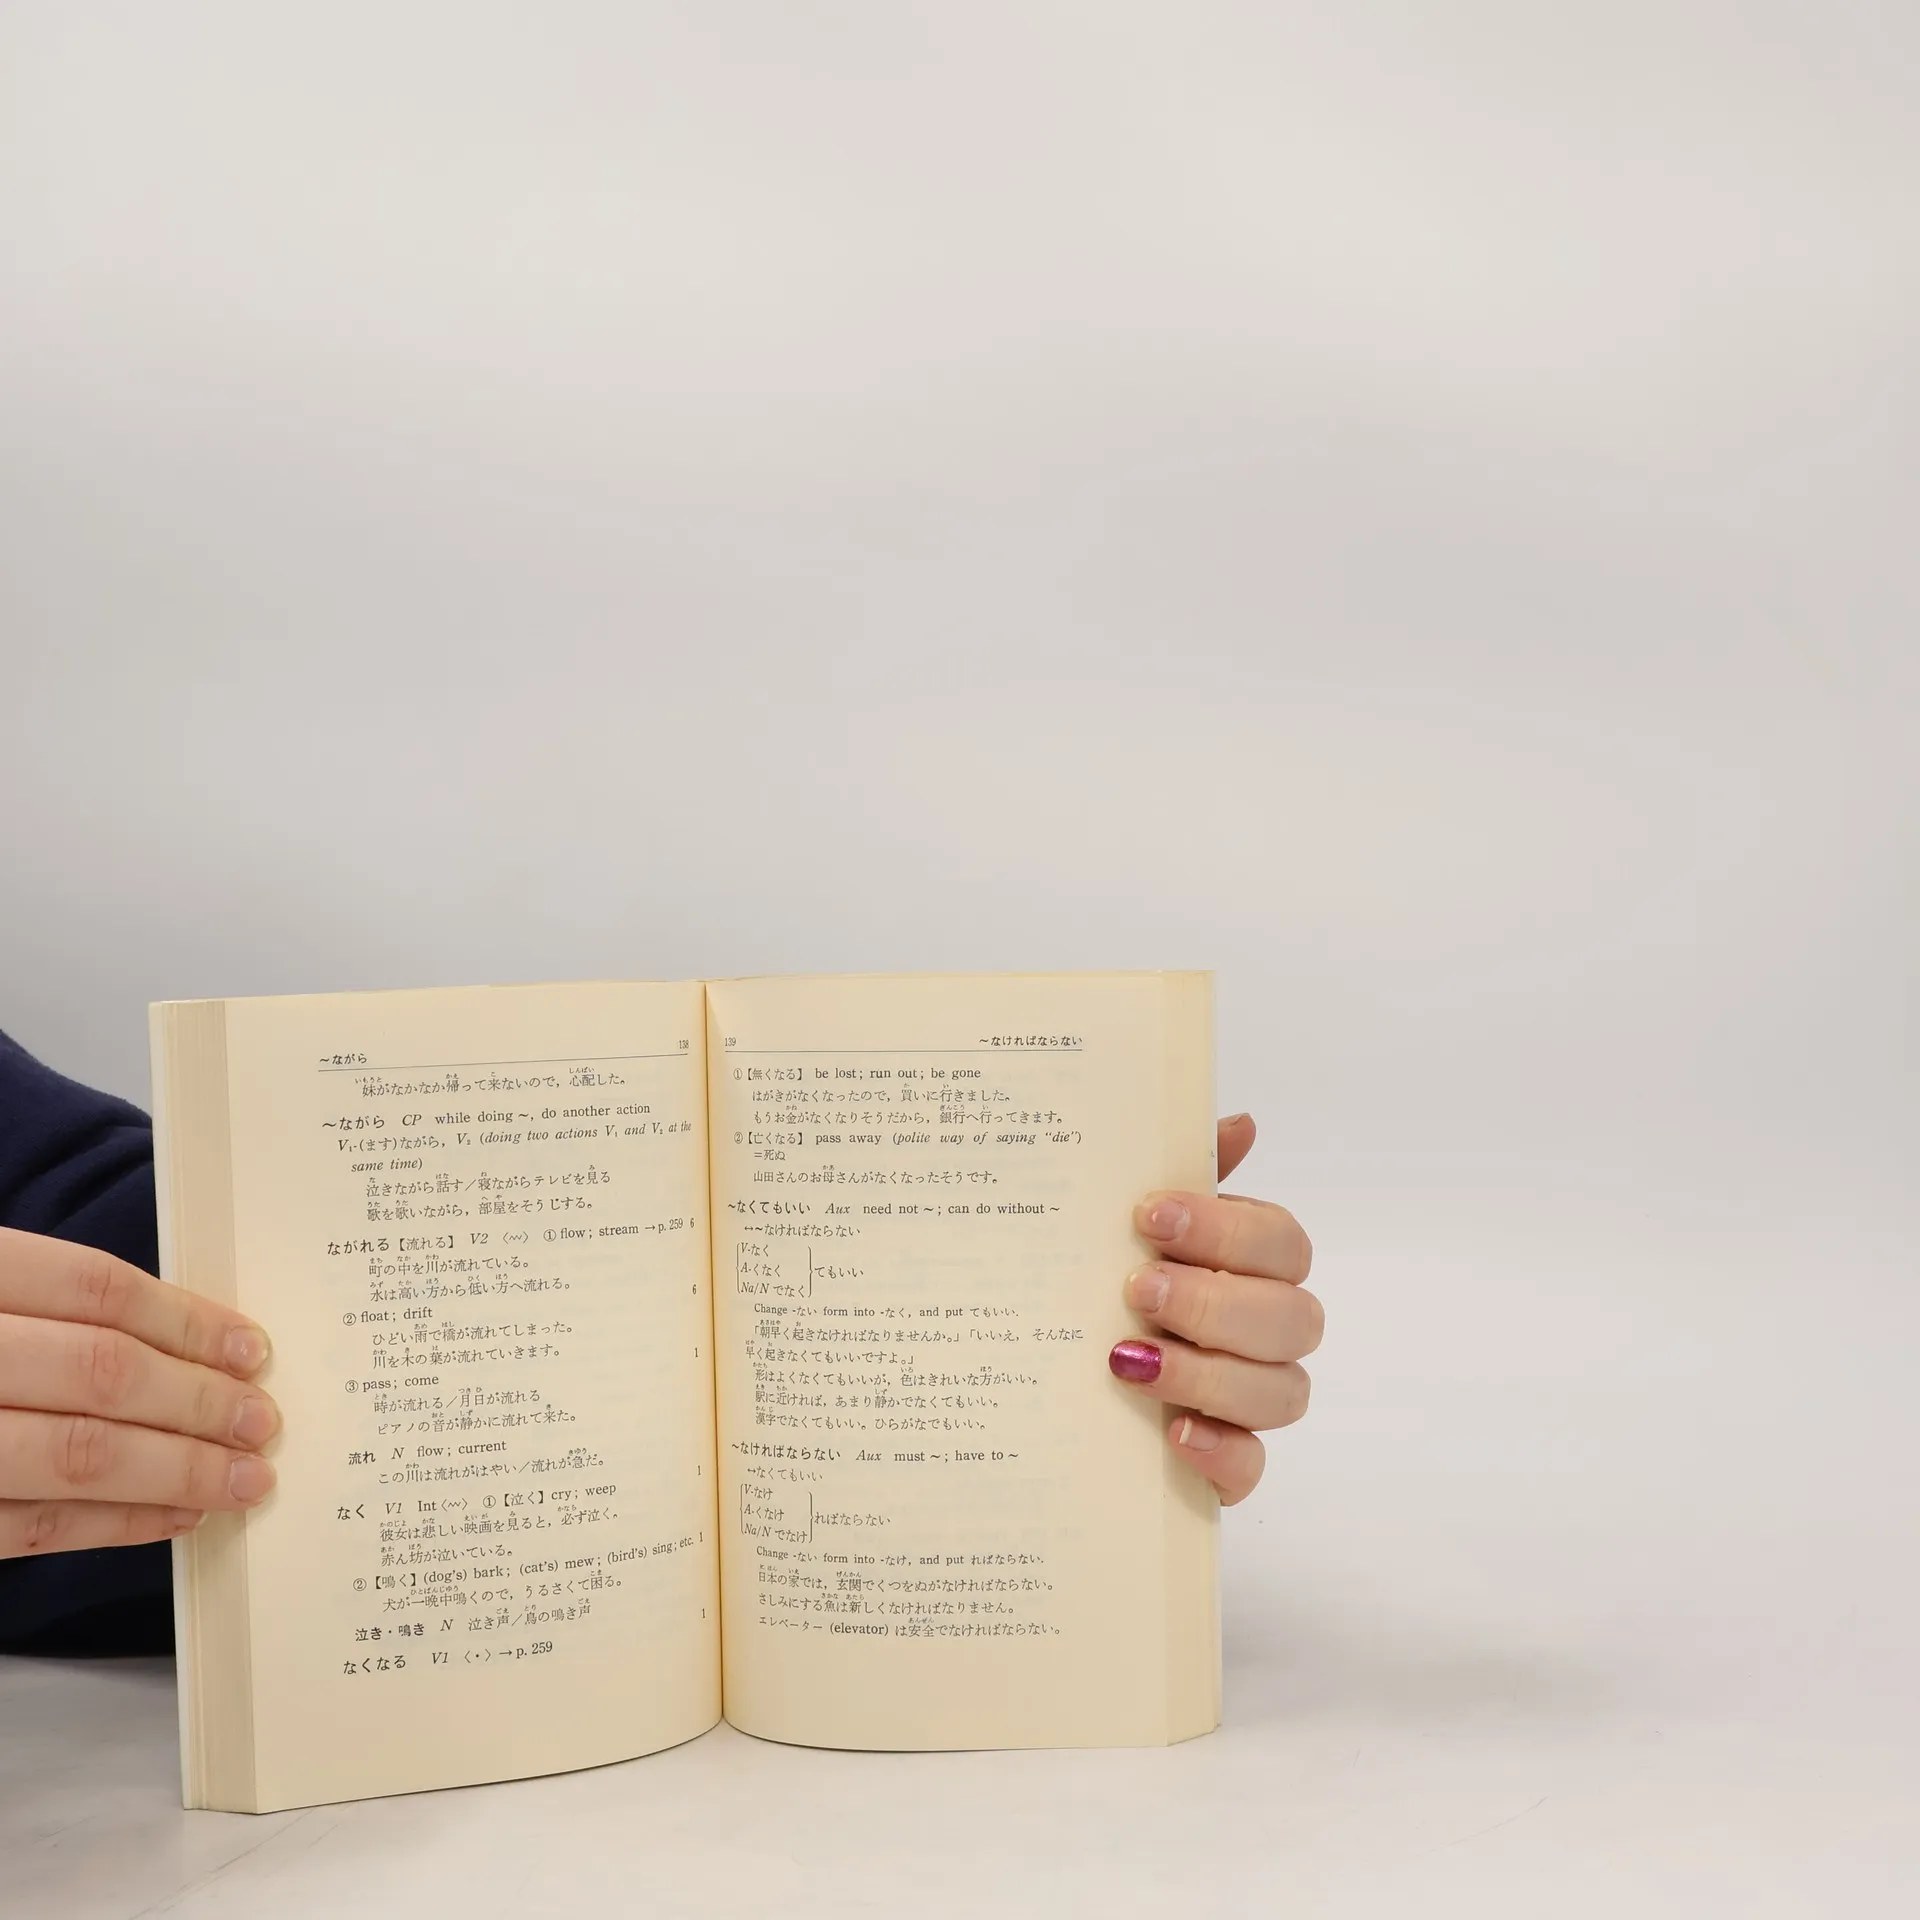 ~ながら 138
妹がなかなか帰って来ないので，心配した。
~ながら CP while doing ~, do another action
V₁-(ます)ながら，V₂ (doing two actions V₁ and V₂ at the
same time)
泣きながら話す／寝ながらテレビを見る
歌を歌いながら，部屋をそうじする。
ながれる【流れる】 V2 〈〰〉 ① flow; stream →p. 259 6
町の中を川が流れている。
水は高い方から低い方へ流れる。
② float; drift 6
ひどい雨で橋が流れてしまった。
川を木の葉が流れていきます。
③ pass; come 1
時が流れる／月日が流れる
ピアノの音が静かに流れて来た。
流れ N flow; current
この川は流れがはやい／流れが急だ。
なく V1 Int〈〰〉 ①【泣く】cry; weep 1
彼女は悲しい映画を見ると，必ず泣く。
赤ん坊が泣いている。
②【鳴く】(dog's) bark; (cat's) mew; (bird's) sing; etc. 1
犬が一晩中鳴くので，うるさくて困る。
泣き・鳴き N 泣き声／鳥の鳴き声
なくなる V1 〈・〉→p. 259 1
139 ~なければならない
①【無くなる】 be lost; run out; be gone
はがきがなくなったので，買いに行きました。
もうお金がなくなりそうだから，銀行へ行ってきます。
②【亡くなる】 pass away (polite way of saying "die")
＝死ぬ
山田さんのお母さんがなくなったそうです。
~なくてもいい Aux need not ~; can do without ~
↔~なければならない
V-なく
A-くなく てもいい
Na/N でなく
Change -ない form into -なく, and put てもいい.
「朝早く起きなければなりませんか。」「いいえ，そんなに
早く起きなくてもいいですよ。」
形はよくなくてもいいが，色はきれいな方がいい。
駅に近ければ，あまり静かでなくてもいい。
漢字でなくてもいい。ひらがなでもいい。
~なければならない Aux must ~; have to ~
↔なくてもいい
V-なけ
A-くなけ ればならない
Na/N でなけ
Change -ない form into -なけ, and put ればならない.
日本の家では，玄関でくつをぬがなければならない。
さしみにする魚は新しくなければなりません。
エレベーター (elevator) は安全でなければならない。